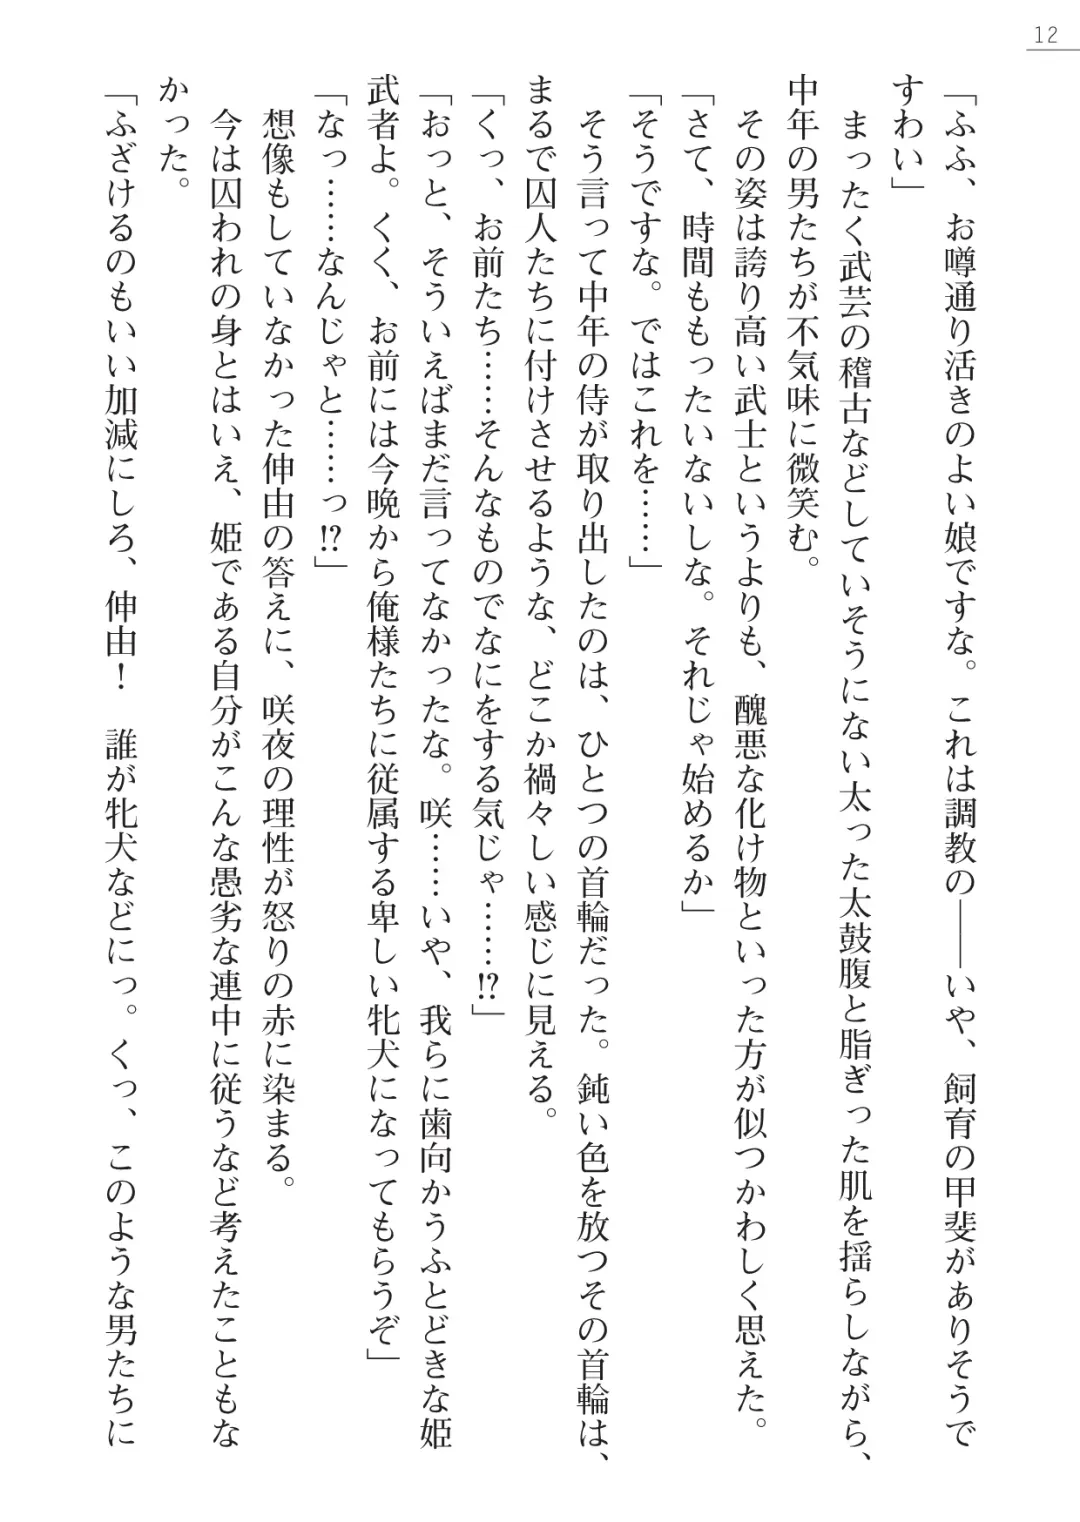 12
「ふふ、お噂通り活きのよい娘ですな。これは調教の――いや、飼育の甲斐がありそうで
すわい」
まったく武芸の稽古などしていそうにない太った太鼓腹と脂ぎった肌を揺らしながら、
中年の男たちが不気味に微笑む。
その姿は誇り高い武士というよりも、醜悪な化け物といった方が似つかわしく思えた。
「さて、時間ももったいないしな。それじゃ始めるか」
「そうですな。ではこれを……」
そう言って中年の侍が取り出したのは、ひとつの首輪だった。鈍い色を放つその首輪は、
まるで囚人たちに付けさせるような、どこか禍々しい感じに見える。
「くっ、お前たち……そんなものでなにをする気じゃ……!?」
「おっと、そういえばまだ言ってなかったな。咲……いや、我らに歯向かうふとどきな姫
武者よ。くく、お前には今晩から俺様たちに従属する卑しい牝犬になってもらうぞ」
「なっ……なんじゃと……っ!?」
想像もしていなかった伸由の答えに、咲夜の理性が怒りの赤に染まる。
今は囚われの身とはいえ、姫である自分がこんな愚劣な連中に従うなど考えたこともな
かった。
「ふざけるのもいい加減にしろ、伸由！　誰が牝犬などにっ。くっ、このような男たちに